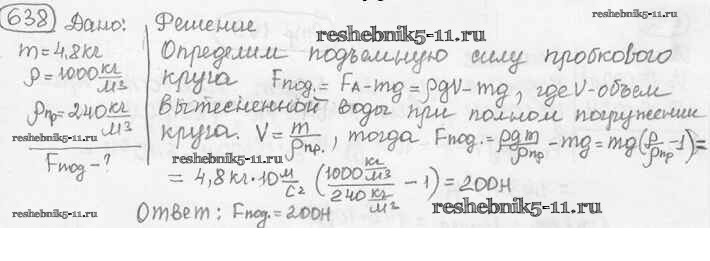 638 Дано:
m=4,8кг
ρ=1000 кг/м3
ρпр=240 кг/м3
Fпод-?
reshebnik5-11.ru
www.reshebnik5-11.ru
Решение
reshebnik5-11.ru
Определим подъемную силу пробкового
круга Fпод.=FА-mg=ρgV-mg, где V-объем
вытесненной воды при полном погружении
круга. V=m/ρпр., тогда Fпод.=ρgm/ρпр-mg=mg(ρ/ρпр-1)=
www.reshebnik5-11.ru
www.reshebnik5-11.ru
=4,8кг·10 м/с2 (1000 кг/м3/240 кг/м3-1)=200Н
reshebnik5-11.ru
Ответ: Fпод.=200Н
www.reshebnik5-11.ru